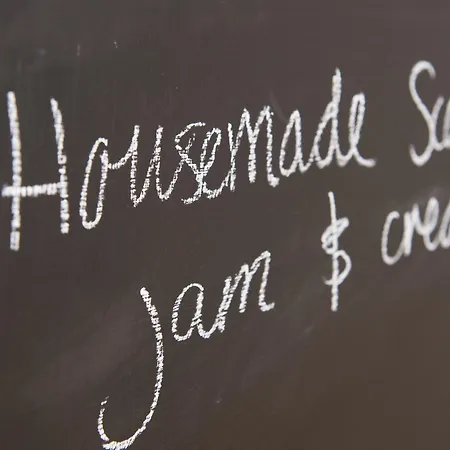 Housemade Sc
Jam & crea